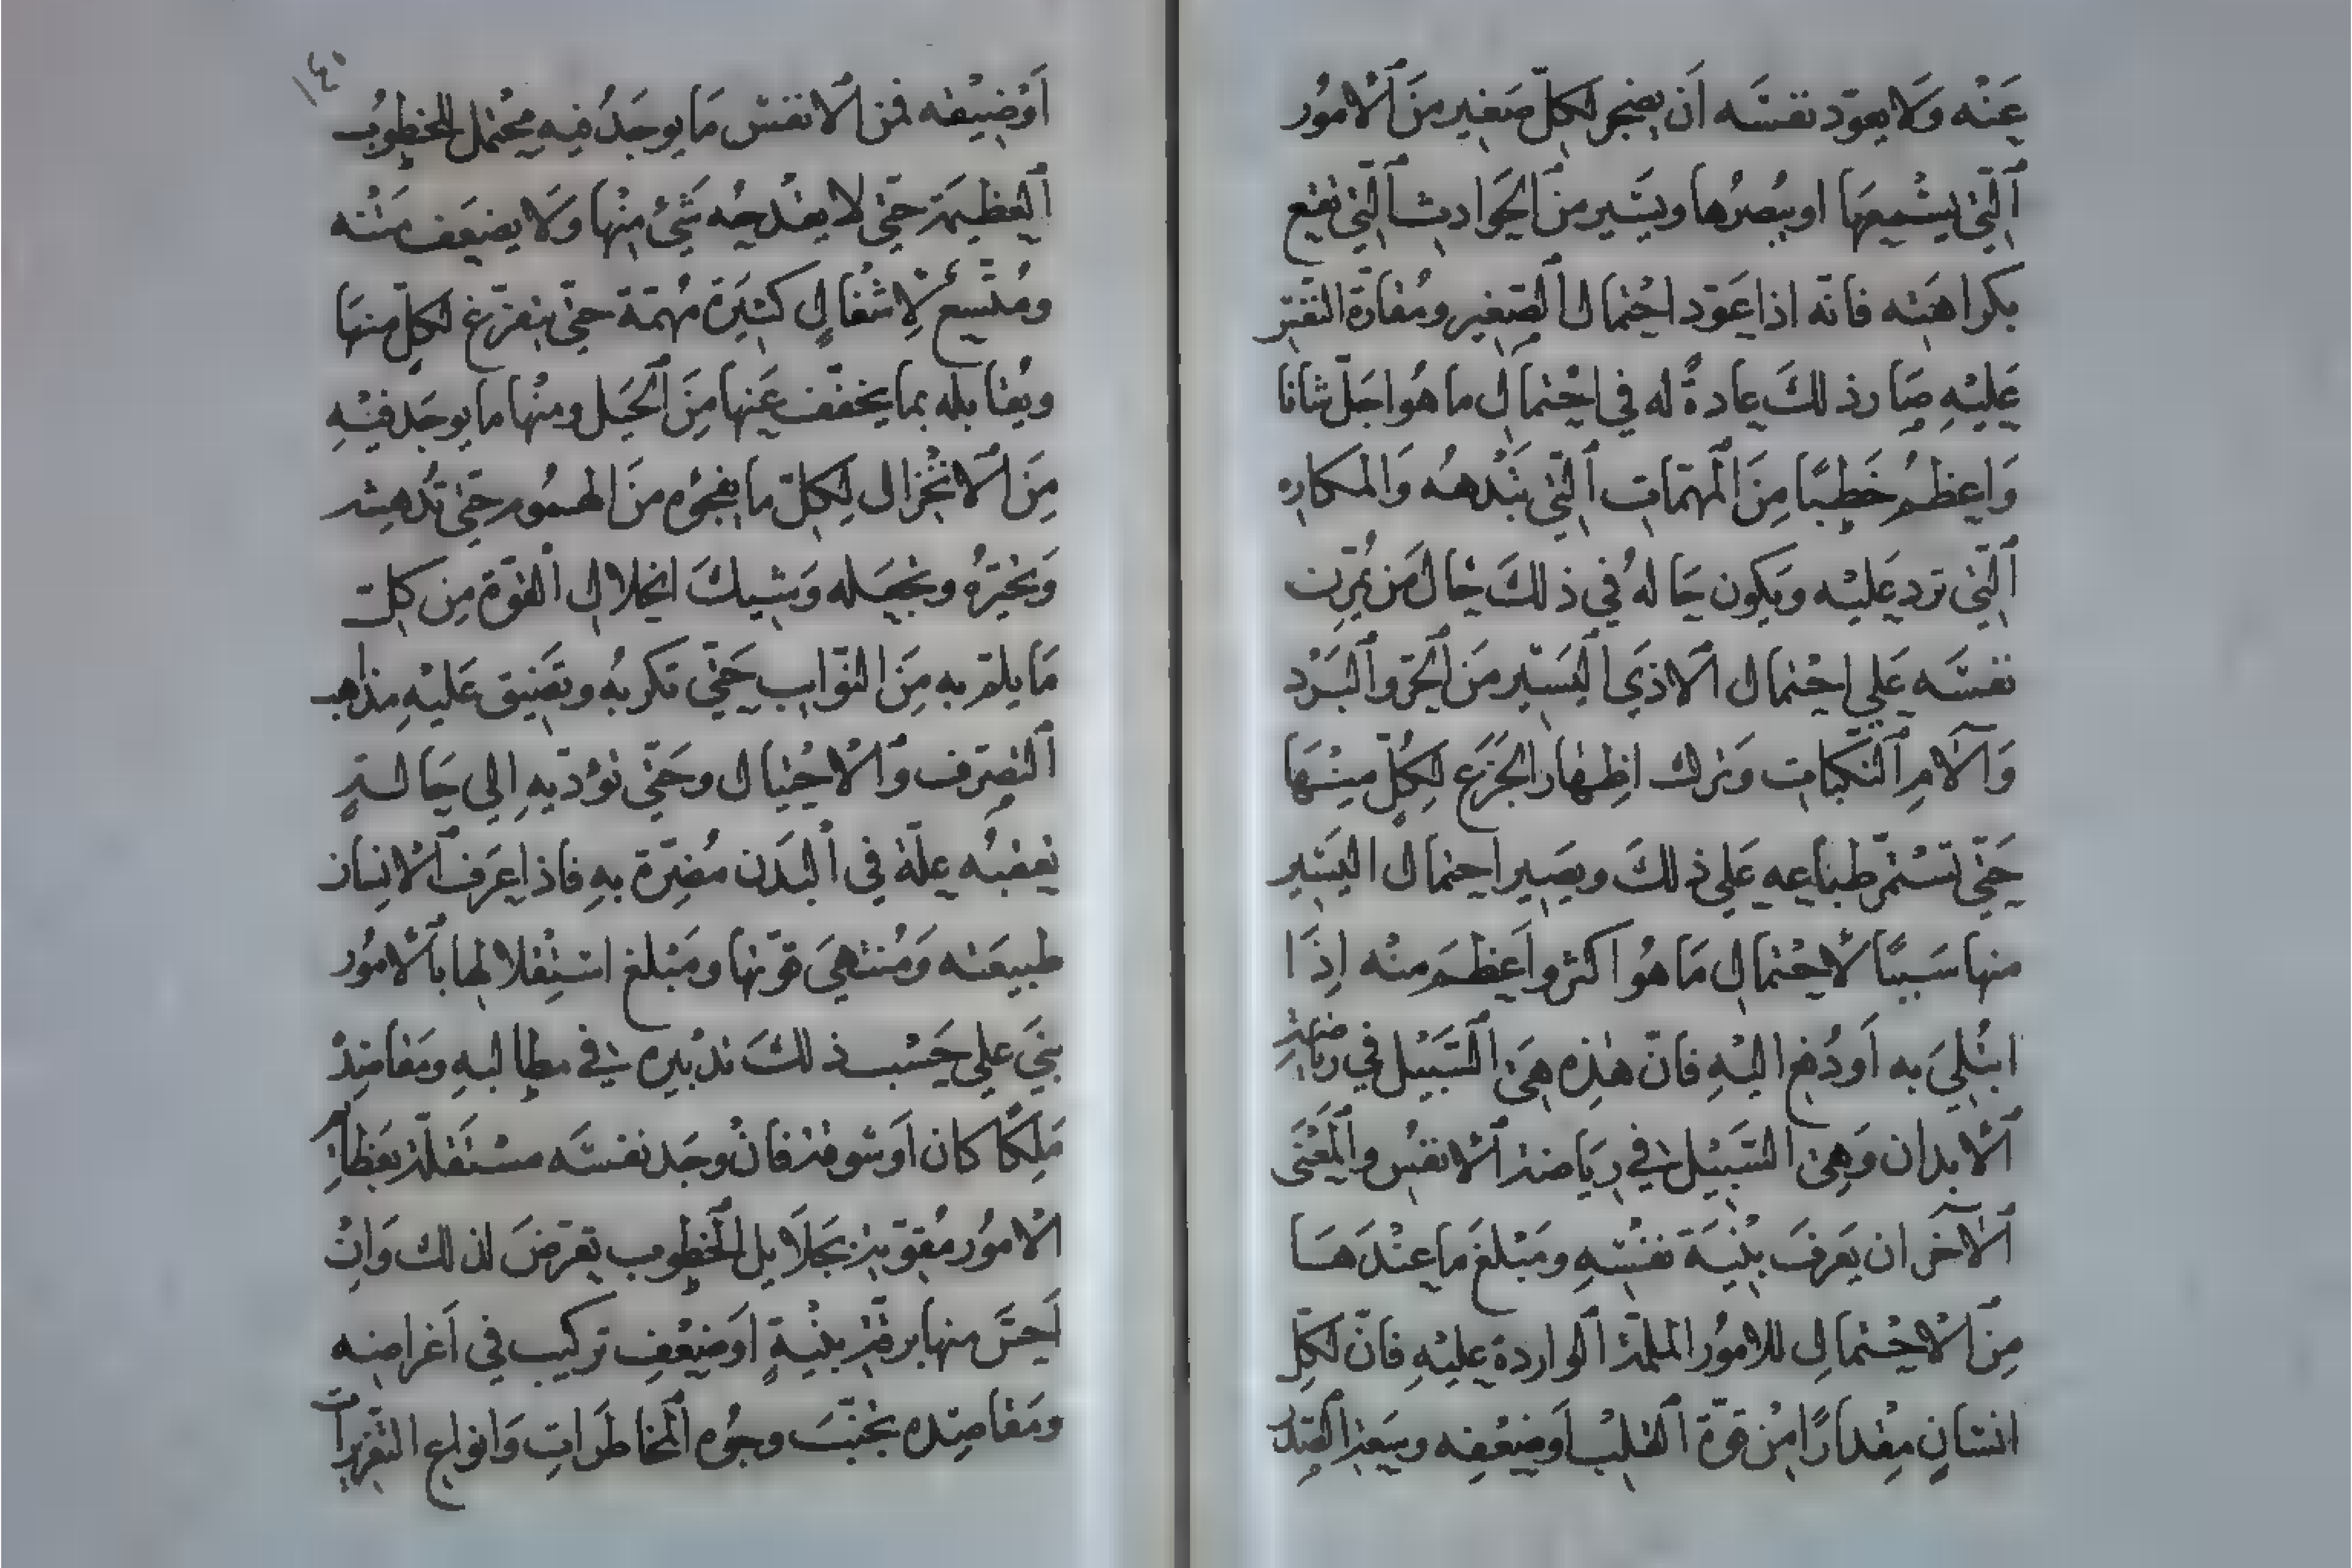 عَنْه وَلا يعوّد نفسَه أَن يضجر لكلّ صَغير منَ ٱلأمُور
ٱلّتي يسْمعهَا او يبُصرُها ويسَير منَ ٱلحَوادث ٱلّتي تقع
بكراهَته فانّه اذا عَوّد احْتمال ٱلصّغير ومُفارّة النفس
عَليْهِ صَار ذلكَ عادةً له في احْتمال ما هُو اجَلّ شانا
وَاعظمُ خَطبًا مِنَ ٱلمهمّات ٱلّتي تبْدهُه وَالمكاره
ٱلّتي ترد عَليْه وَيكون حَالهُ في ذلكَ حَال مَن تُمرّت
نفسَه عَلى احْتمال ٱلاذَي ٱليَسَير منَ ٱلحَرّ وٱلبَرْد
وَٱلآمِ ٱلنّكبَات وَترك اظِهْار ٱلجَزَع لكِلُّ منْهَا
حَتّى تسْتمرّ طباعه عَلى ذلكَ ويصَير احتمال اليَسَير
منها سَببًا لأحْتمال مَا هُو اكثر وأَعظمَ منْه إذَا
ابتُلِيَ به أَو دُفع اليْهِ فانّ هٰذِه هيَ ٱلسَّبيْل في رياضة
ٱلأبدان وَهِيَ السَّبيْل في رِيَاضة ٱلأنفُس وٱلمَعْنَى
ٱلآخَر ان يَعرفَ بِنْيَة نفسْهِ ومَبْلغَ ما عنْدَهَا
مِنَ ٱلأحْتمالِ للامُور الملمّة ٱلواردة عليْهِ فانّ لكلِّ
انسَانٍ مِقْدارًا مِنْ قوّة ٱلقلبْ أَو ضِعْفِه وسَعة ٱلصّدْر
أَوْ ضيْقه فمن ٱلانفسْ مَا يوجَدُ فيه محْتمل للخطوُب
ٱلعَظيمَة حتّى لا يفْدحُه شَيْئ منْها وَلا يضعَف متْنه
ومُتّسع لأِشْغالٍ كثيَرة مُهمّة حتّى يتفرّغ لكلّ منهَا
ويُقابله بما يخفّف عَنها مِنَ ٱلحيَل ومنْها ما يوجَد فيْهِ
مِنَ ٱلأنْخزال لكِلّ ما يفجؤه منَ الهمُوم حتّى تُدهشه
وَتحْيّرهُ وتخجَله وَشيكَ انحلالِ ٱلقوّة مِن كلّ
مَا يلمّ به مِنَ النوّايب حَتّى تكربُه وتضَيق عَليْهِ مذاهب
ٱلتصرّف وَٱلأحْتيال وحَتّى تؤدّيهِ إلى حَالةٍ
تعقبُه علّة في ٱلبَدَن مُضِرّة بهِ فاذا عَرَف ٱلأنِسان
طبيعَته وَمُنتهيَ قوّتها ومَبْلغ استِقْلالها بٱلأمُور
بنيَ على حَسْب ذلكَ تدْبيره في مطالبهِ ومَقاصِدِه
مَلِكًا كان أَو سُوقة فانْ وجَد نفسَه مسْتقَلّة بعَظائم
ٱلامُور مُقوّية بجَلَايل ٱلخطُوب تعَرّضَ لذلك وَانْ
أَحسَّ منها برقّة بنْيةٍ اوَ ضعْفِ تركيب في أَغراضه
ومَقاصِده تجنّبَ وجُوه ٱلمخاطَراتِ وَانواع التغرّيرات
١٤٠